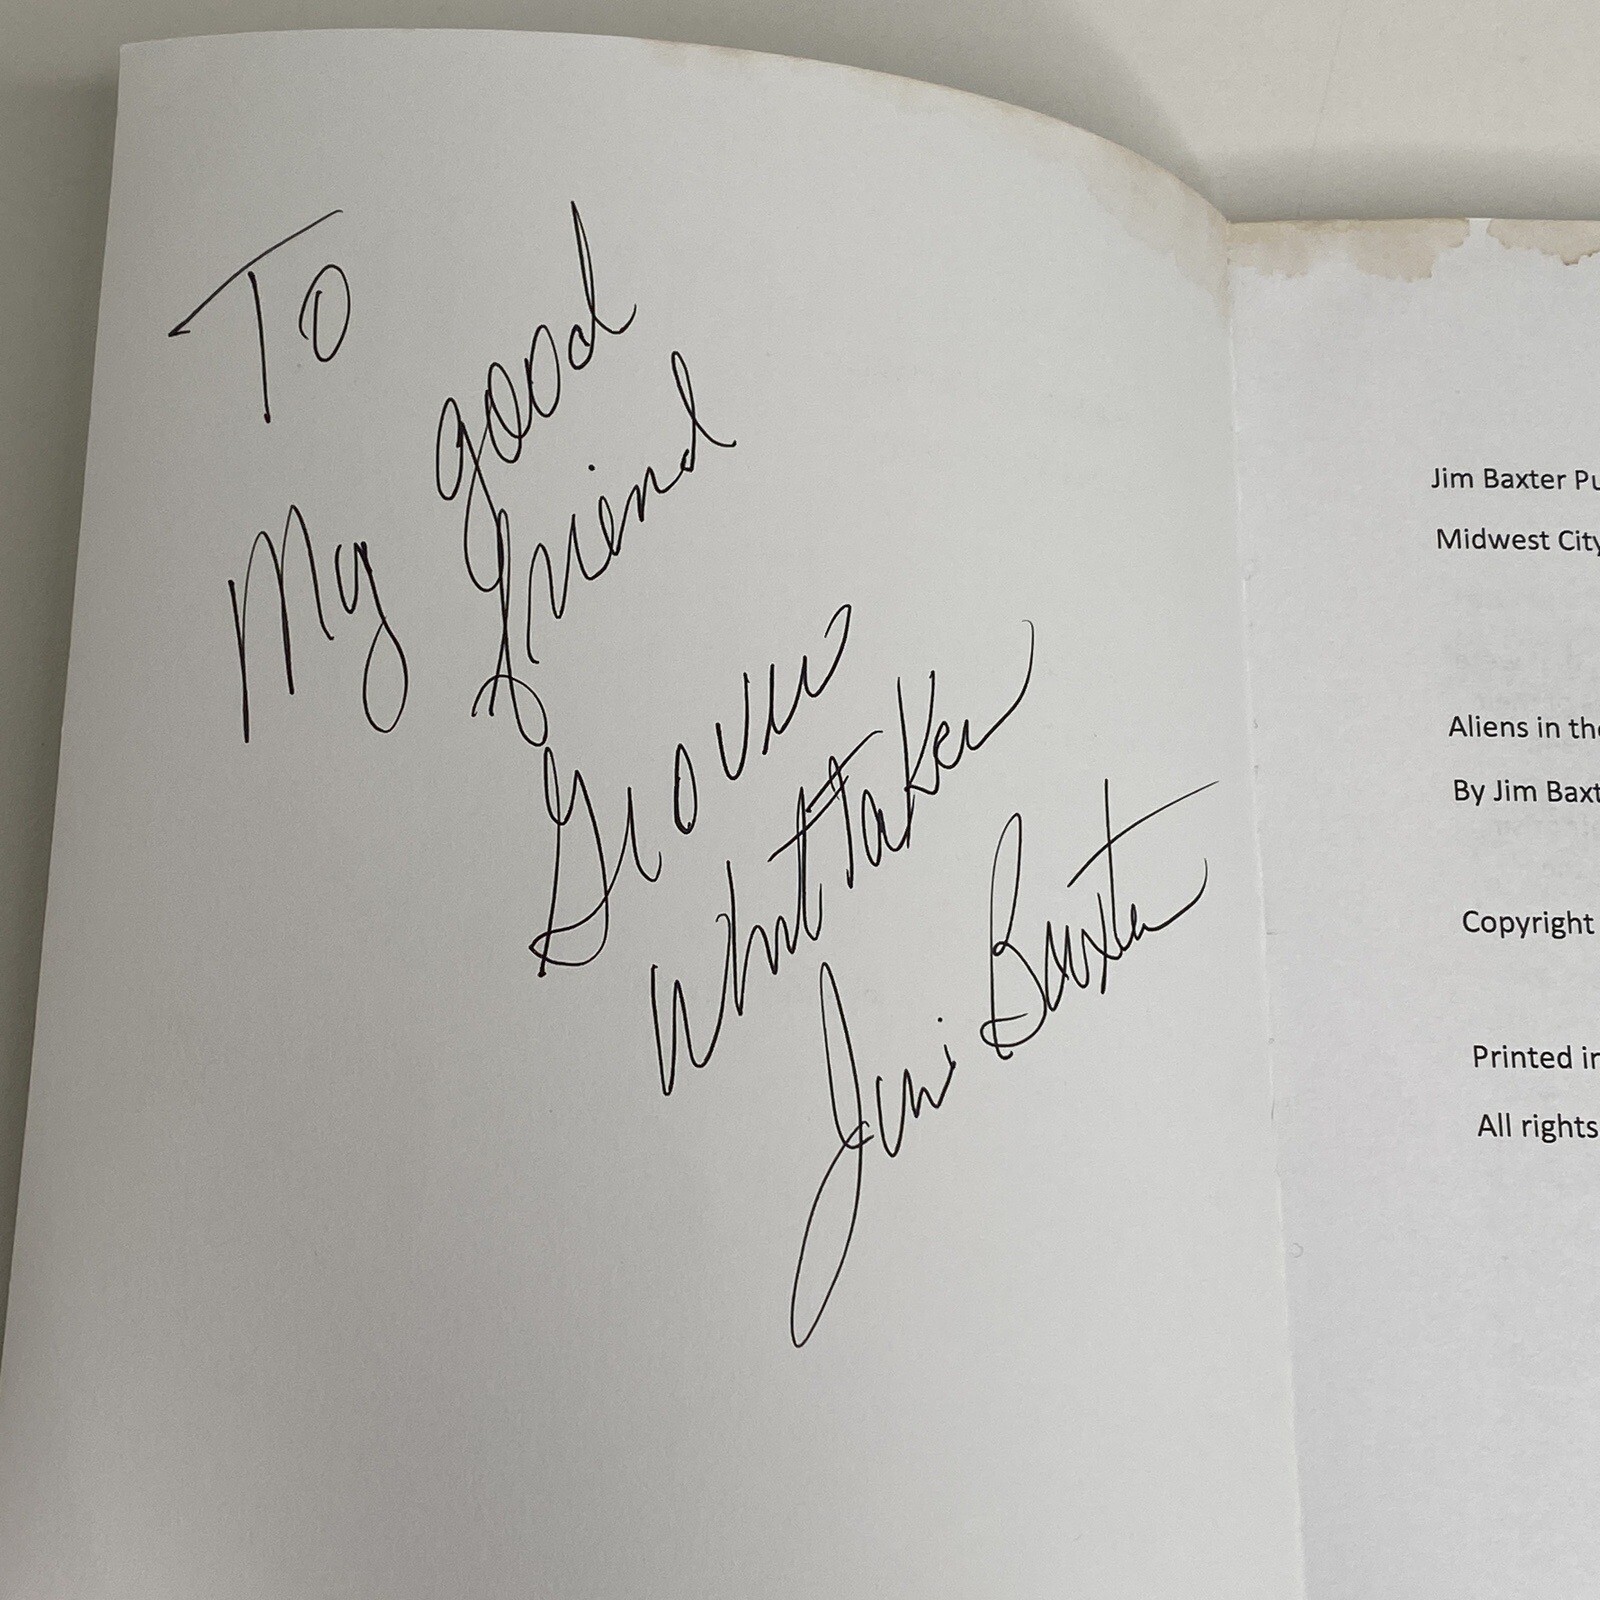 To
My good
friend
Grover
Whittaker
Jim Baxter
Jim Baxter Pu
Midwest City
Aliens in the
By Jim Baxt
Copyright
Printed in
All rights